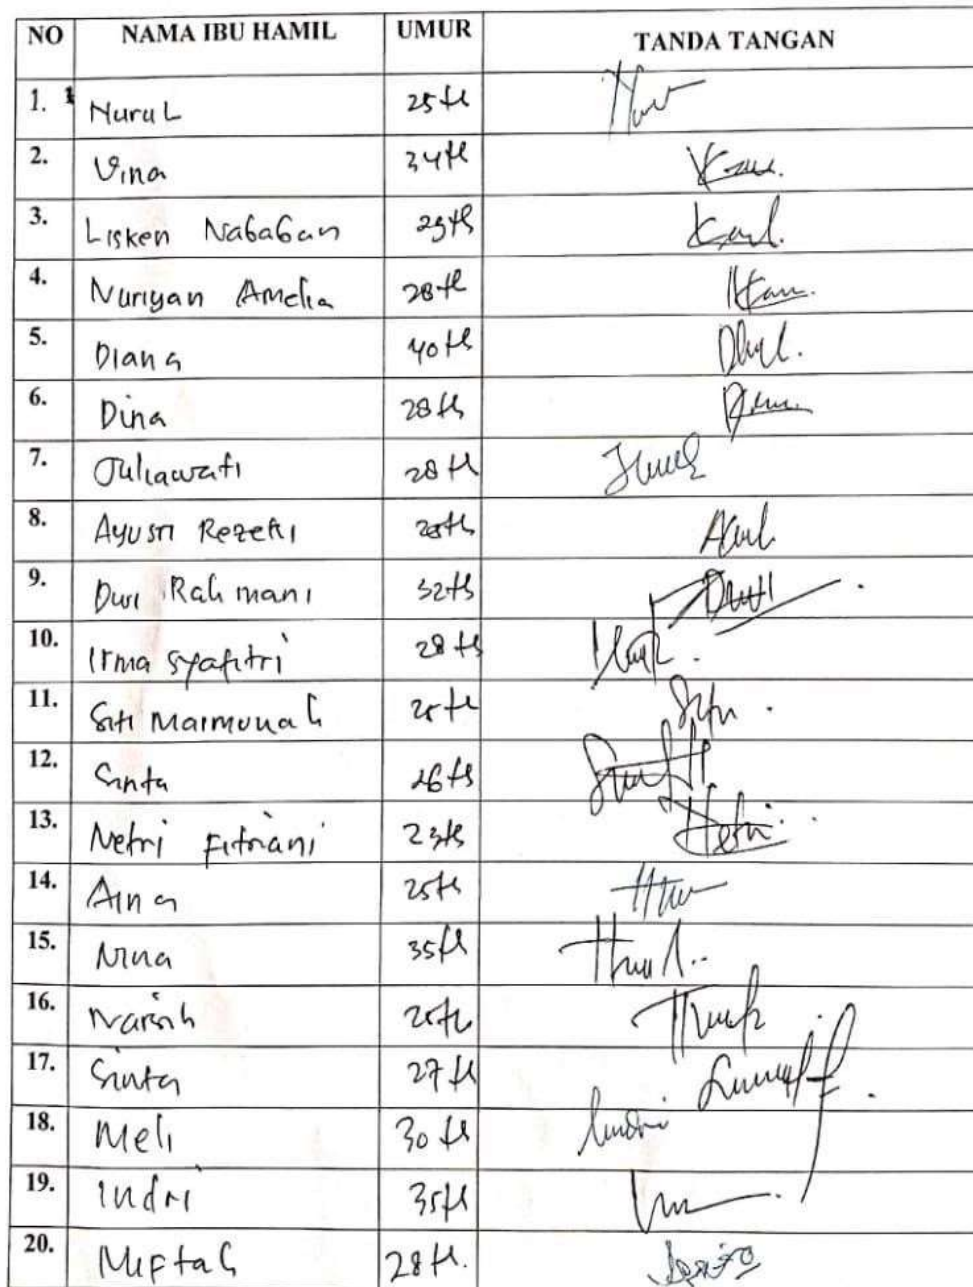 NO NAMA IBU HAMIL UMUR TANDA TANGAN
1. Nurul 25 th
2. Vina 34 th
3. Lisken Nababan 29 th
4. Nuriyan Amelia 28 th
5. Diana 40 th
6. Dina 28 th
7. Juliawati 28 th
8. Ayusri Rezeki th
9. Dwi Rahmani 32 th Dwi
10. Irma Syafitri 28 th
11. Siti Maimunah 25 th
12. Santa 26 th
13. Netri Fitriani 23 th
14. Aina 25 th
15. Nina 35 th
16. 25 th
17. Sinta 27 th
18. Meli 30 th
19. Indri 35 th
20. Miftah 28 th.